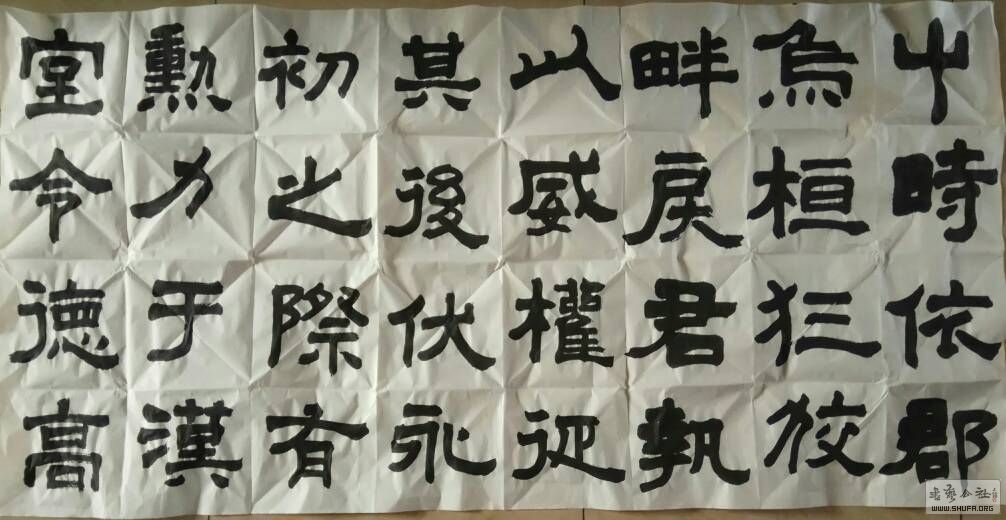 屮時依郡
烏桓狂狡
畔戾君執
以威權征
其後伏永
初之際有
勳力于漢
室令德高
書藝公社
WWW.SHUFA.ORG